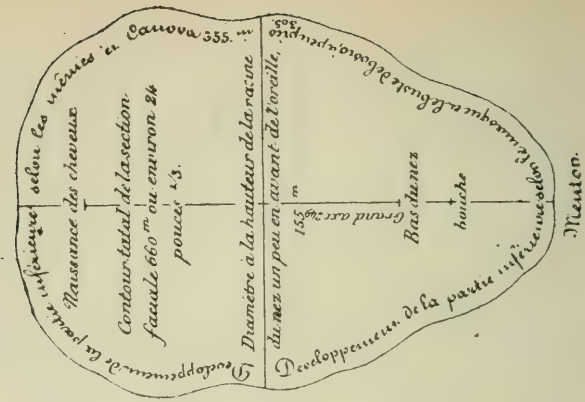 Developpement de la partie inférieure selon les mêmes et Canova 355. m
Naissance des cheveux
Contour total de la section
faciale 660 m ou environ 24
pouces 1/3.
Diamètre à la hauteur de la racine
du nez un peu en avant de l'oreille,
155 m
Grand axe
Bas du nez
bouche
Developpement de la partie inférieure selon le masque et le buste de Corsi, à peu près
305.
Menton.